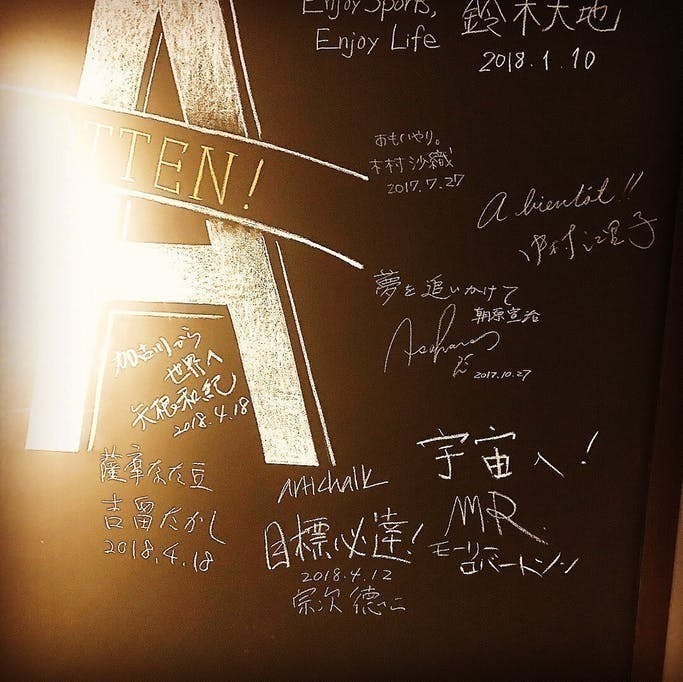 Enjoy Sports,
Enjoy Life
鈴木大地
2018.1.10
TTEN!
おもいやり。
木村沙織
2017.7.27
A bientôt!!
中村江里子
夢を追いかけて
朝原宣治
2017.10.27
加古川から
世界へ
矢根和紀
2018.4.18
薩摩なた豆
吉留たかし
2018.4.18
ARtichalk
目標必達!
2018.4.12
宗次德二
宇宙へ!
MR.
モーリー
ロバートソン